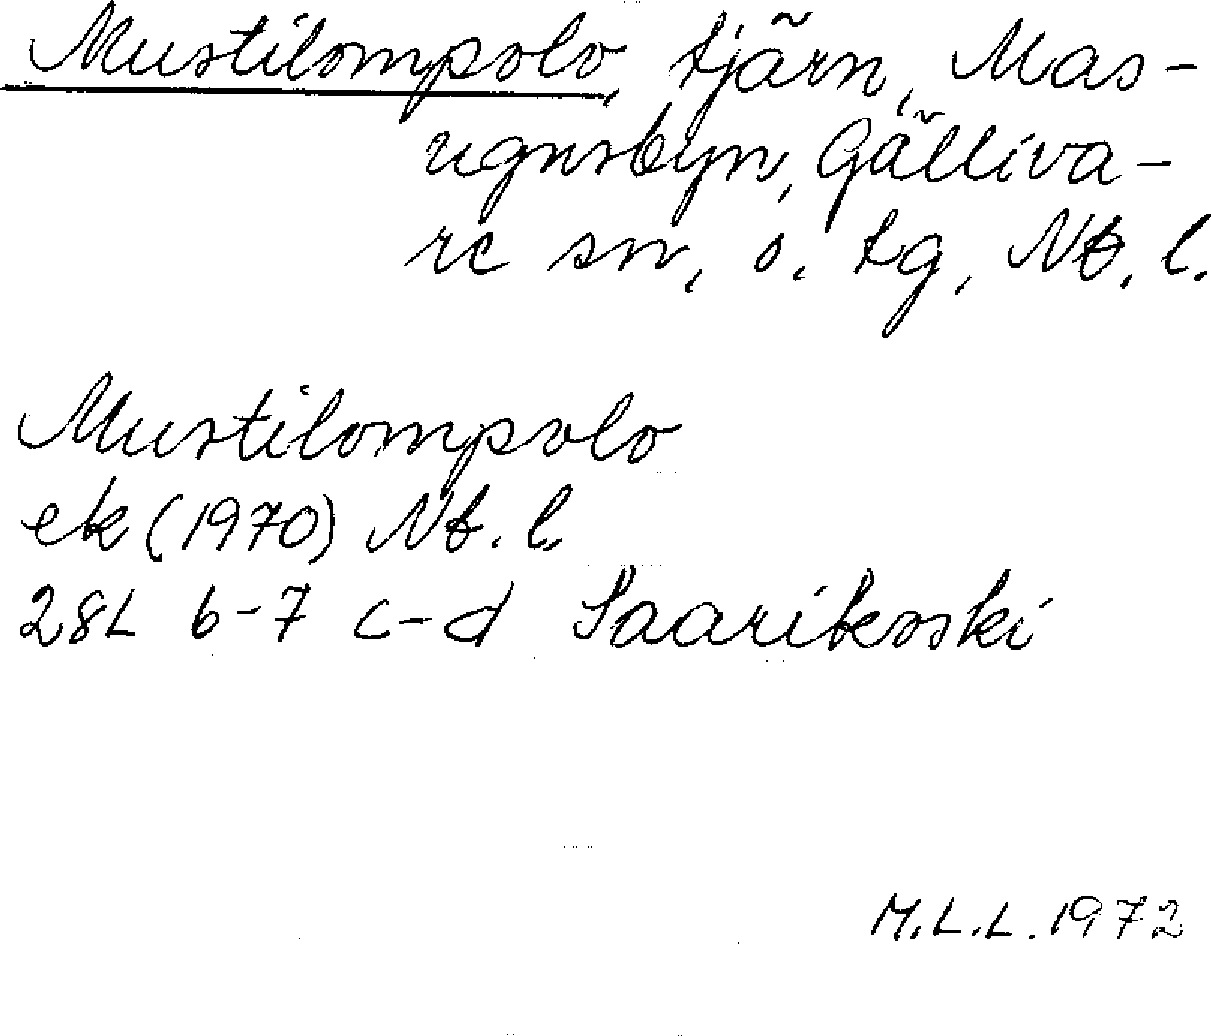 Mustilompolo, tjärn, Mas-
ugnsbyn, Gälliva-
re sn, s. tg, Nb. l.
Mustilompolo
ek (1970) Nb. l.
28L 6-7 c-d Saarikoski
M.L.L. 1972